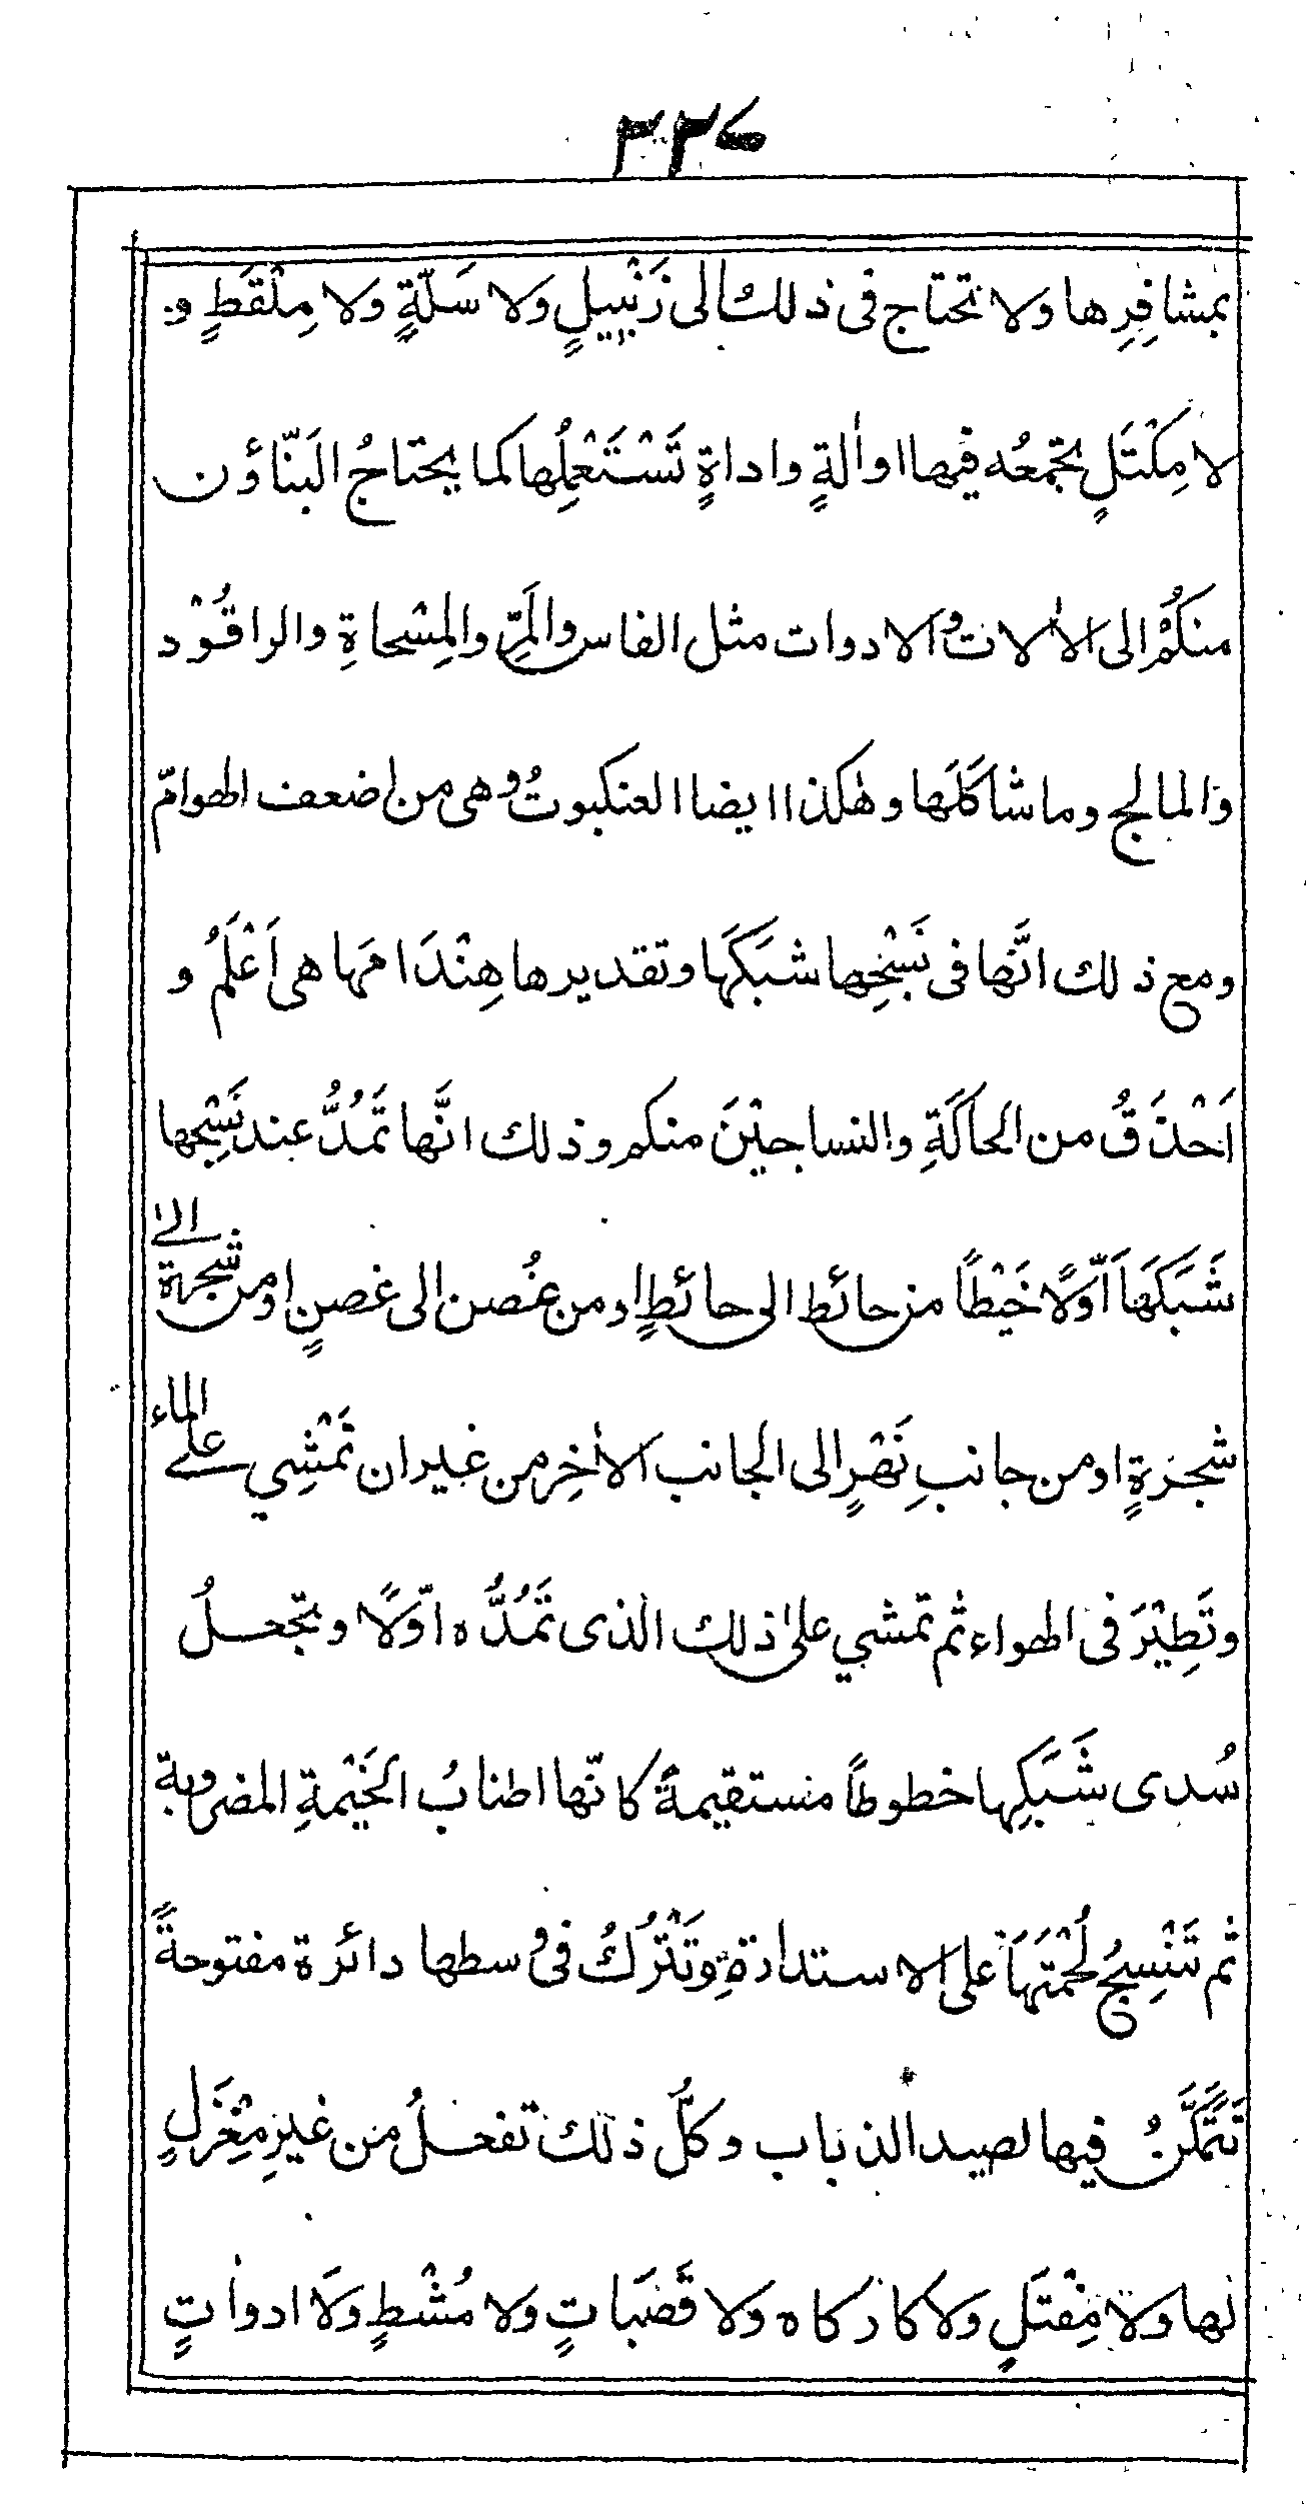 ٣٣٧
بمشافِرِها ولا تحتاج فى ذلك الى زَنْبِيلٍ ولا سَلّةٍ ولا مِلْقَطٍ و
لا مِكْتَلٍ تجمعُه فيها او اٰلةٍ واداةٍ تَسْتَعْمِلُها كما يحتاجُ البَنّاؤن
منكُمْ الى الاٰلات والادوات مثل الفاس والمَرِّ والمِسْحاةِ والراقُوْد
والمالج وما شاكَلَها وهٰكذا ايضا العنكبوتُ وهى من اضعف الهوامّ
ومع ذلك انَّها فى نَسْجِها شبَكَها وتقديرها هِنْدَامَها هى اَعْلَمُ و
اَحْذَقُ من الحاكَةِ والنساجيْنَ منكم وذلك انَّها تَمُدُّ عند نَسْجِها
شَبَكَهَا اَوّلًا خَيْطًا من حائط الى حائطٍ او من غُصن الى غصنٍ او من شجرة الى
شجرةٍ او من جانبِ نَهْرٍ الى الجانب الاٰخِر من غير ان تَمْشِي على الماء
وتَطِيْرَ فى الهواء ثم تمشي على ذلك الذى تَمُدُّه اوّلًا وتجعلُ
سُدى شَبَكِها خطوطًا مستقيمةً كانّها اطنابُ الخَيْمةِ المضروبة
ثم تَنْسِجُ لُحْمَتَهَا على الاستدارةِ وتَتْرُكُ فى وسطها دائرة مفتوحةً
تَتَمَكَّنُ فيها لصيد الذباب وكلُّ ذلك تفعلُ من غيرِ مِغْزَلٍ
لها ولا مِفْتَلٍ ولا كاركاه ولا قَصَباتٍ ولا مُشْطٍ ولَا ادواتٍ